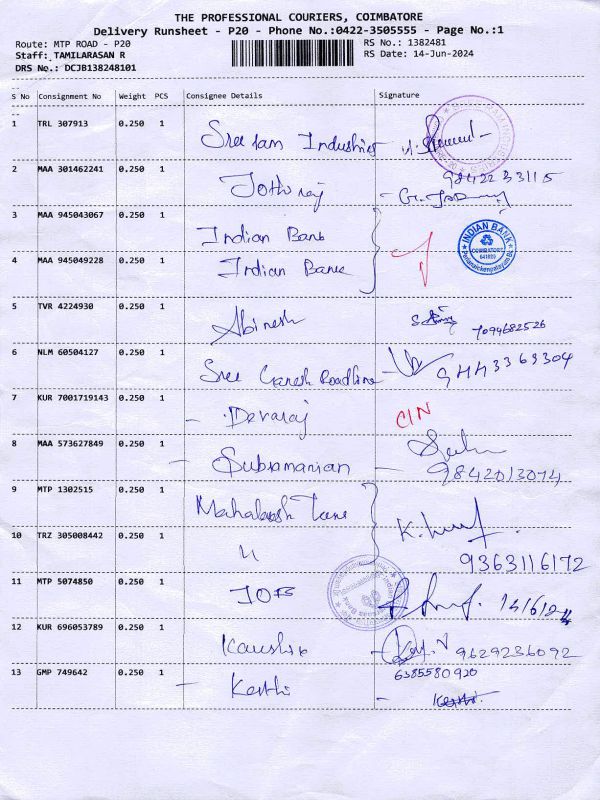 THE PROFESSIONAL COURIERS, COIMBATORE
Delivery Runsheet - P20 - Phone No.:0422-3505555 - Page No.:1
Route: MTP ROAD - P20
RS No.: 1382481
Staff: TAMILARASAN R
RS Date: 14-Jun-2024
DRS No.: DCJB138248101
S No Consignment No Weight PCS Consignee Details Signature
1 TRL 307913 0.250 1 Sree ram Industries
2 MAA 301462241 0.250 1 Jothi raj 9842233115
3 MAA 945043067 0.250 1 Indian Bank
INDIAN BANK
COIMBATORE
641020
4 MAA 945049228 0.250 1 Indian Bank
5 TVR 4224930 0.250 1 Abinesh 7094682526
6 NLM 60504127 0.250 1 Sree Ganesh Roadline 9443369304
7 KUR 7001719143 0.250 1 - Devaraj C/N
8 MAA 573627849 0.250 1 - Subramanian - 9842013074
9 MTP 1302515 0.250 1
10 TRZ 305008442 0.250 1 " 9363116172
11 MTP 5074850 0.250 1 IOB 14/6/24
12 KUR 696053789 0.250 1 Kaushik 9629236092
13 GMP 749642 0.250 1 - Keethi 6385580920